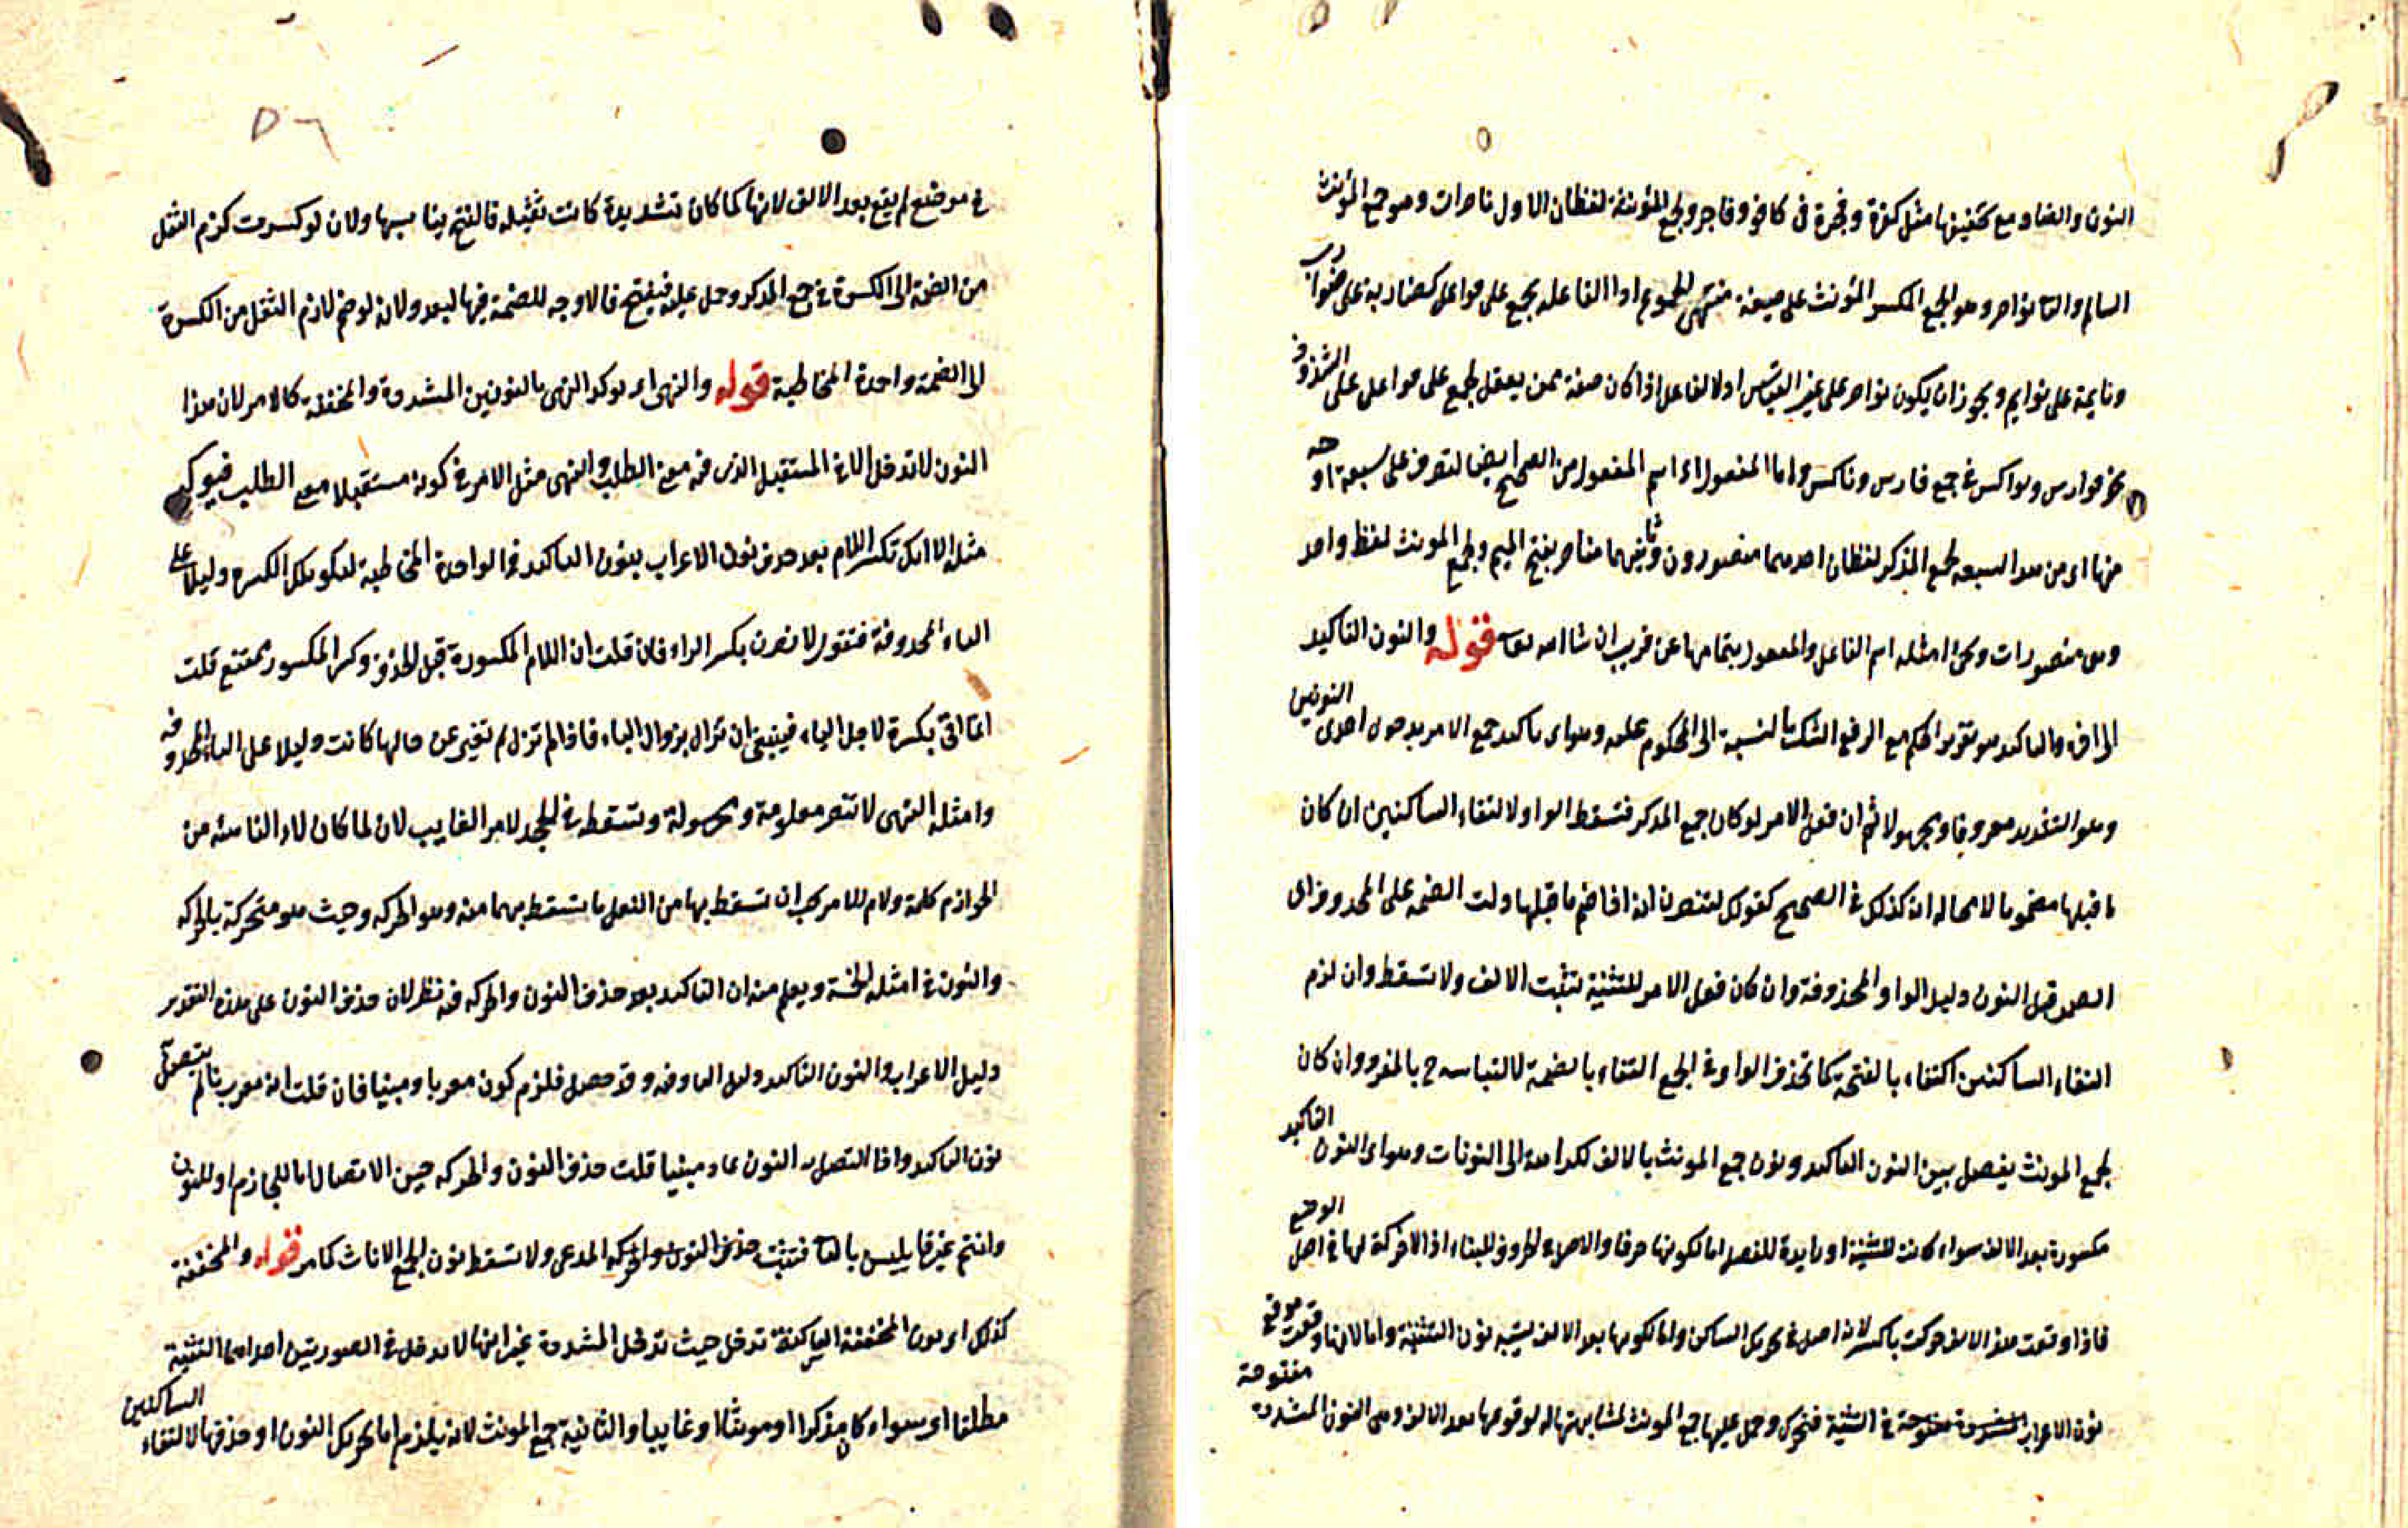 النون والضاد مع تخفيفها مثل كفرة وفجرة في كافر وفاجر ولجمع المؤنثة لفظان الاول ناصرات وهو جمع المؤنث
السالم والثا نواصر وهو الجمع المكسر المؤنث على صيغة منتهى الجموع اذا الفاعلة يجمع على فواعل كضاربة على ضوارب
ونايمة على نوايم ويجوز ان يكون نواصر على غير القياس اذ الفاعل اذا كان صفة ممن يعقل لجمع على فواعل على الشذوذ
نحو فوارس ونواكس في جمع فارس وناكس واما المفعول اي اسم المفعول من الصحيح ايضا لتصرف على سبعة اوجه
منها اي من هذا السبعة لجمع المذكر لفظان احدهما منصورون وثانيهما مناصر بفتح الميم ولجمع المونث لفظ واحد
وهي منصورات وتجئ امثله اسم الفاعل والمفعول بتمامها عن قريب ان شا الله تعا قوله والنون التاكيد
الى اخره والتاكيد هو تقرير الحكم مع الرفع الشك بالنسبة الى المحكوم عليه وهو اي تاكيد جميع الامر بدخول احدى النونين
وهو التقدير معروفا ومجهولا ثم ان فعل الامر لو كان جمع المذكر فتسقط الواو لالتقاء الساكنين ان كان
ما قبلها مضموما لا محالة انه كذلك في الصحيح كقولك لتنصرن انه اذا ضم ما قبلها دلت الضمه على المحذوف اي
الضمة قبل النون دليل الواو المحذوفة وان كان فعل الامر للتثنية تثبت الالف ولا تسقط وان لزم
التقاء الساكنين اكتفاء بالفتحة كما تحذف الواو في الجمع اكتفاء بالضمة لالتباسه ح بالمفرد وان كان
لجمع المونث يفصل بين النون التاكيد ونون جمع المونث بالالف لكراهة الى النونات وهو اي النون التاكيد
مكسورة بعد الالف سواء كانت للتثنية او زايدة للفصل اما لكونها حرفا والاصل في الحروف للبناء اذ لا حركة لها في اصل الوضع
فاذا وقعت هذا الالف حركت بالكسر لانه اصل في تحريك الساكن واما لكونها بعد الالف يشبه نون التثنية واما لانها وقعت موقع
نون الاعراب في التثنية فتحرك وحمل عليها جمع المونث لمشابهتها له لوقوعها بعد الالف وهي النون المشددة مفتوحة
في موضع لم يقع بعد الالف لانها كما كان تشديدة كانت ثقيلة فالفتح يناسبها ولان لو كسرت لزم الثقل
من الضمة الى الكسرة في جمع المذكر وحمل عليه فيفتح فالاوجه للضمة فيها لبعد ولانه لو ضم لازم الثقل من الكسرة
الى الضمة واحدة المخاطبة قوله والنهى اي يوكد النهى بالنونين المشددة والمخففة كالامر لان هذا
النون لا تدخل الا في المستقبل الذي فيه معنى الطلب والنهى مثل الامر في كونه مستقبلا مع الطلب فيوكد
مثله الا انك تكسر اللام بعد حذف نون الاعراب بنون التاكيد في الواحدة المخاطبة لتكون تلك الكسرة دليلا على
الياء المحذوفة فتقول لا تضربن بكسر الراء فان قلت ان اللام المكسورة قبل الحذف وكسر المكسور ممتنع قلت
انما اتى بكسرة لاجل الياء فينبغي ان تزال بزوال الياء فاذا لم تزل لم تغير عن حالها كانت دليلا على الياء المحذوفة
وامثلة النهى لا تنصر معلومة ومجهولة وتسقط في المجد لامر الغايب لان لما كان لاء الناهية من
الجوازم كلمة ولام للامر يجب ان تسقط بها من الفعل ما تسقط بهما منه وهو الحركه وحيث هو متحركة بالحركه
والنون في امثلة الخمسة ويعلم منه ان التاكيد بعد حذف النون والحركه فيه نظر لان حذف النون على هذه التقدير
دليل الاعراب والنون التاكيد دليل البناء وفيه وقد حصل فلزم كون معربا ومبنيا فان قلت انه معرب ما لم يتصل
نون التاكيد واذا اتصل به النون عاد مبنيا قلت حذف النون والحركه حين الاتصال اما للجازم او للنون
وانتم غيرها بليس بالتا فتثبت حذف النون والحركه المدعى ولا تسقط نون الجمع الاناث كما مر قوله والمخففة
كذلك اي نون المخففة الساكنة تدخل حيث تدخل المشددة غير انها لا تدخل في الصورتين احداهما التثنية
مطلقا اي سواء كان مذكرا او مونثا او غايبا والثانية جمع المونث لانه يلزم اما تحريك النون او حذفها لالتقاء الساكنين